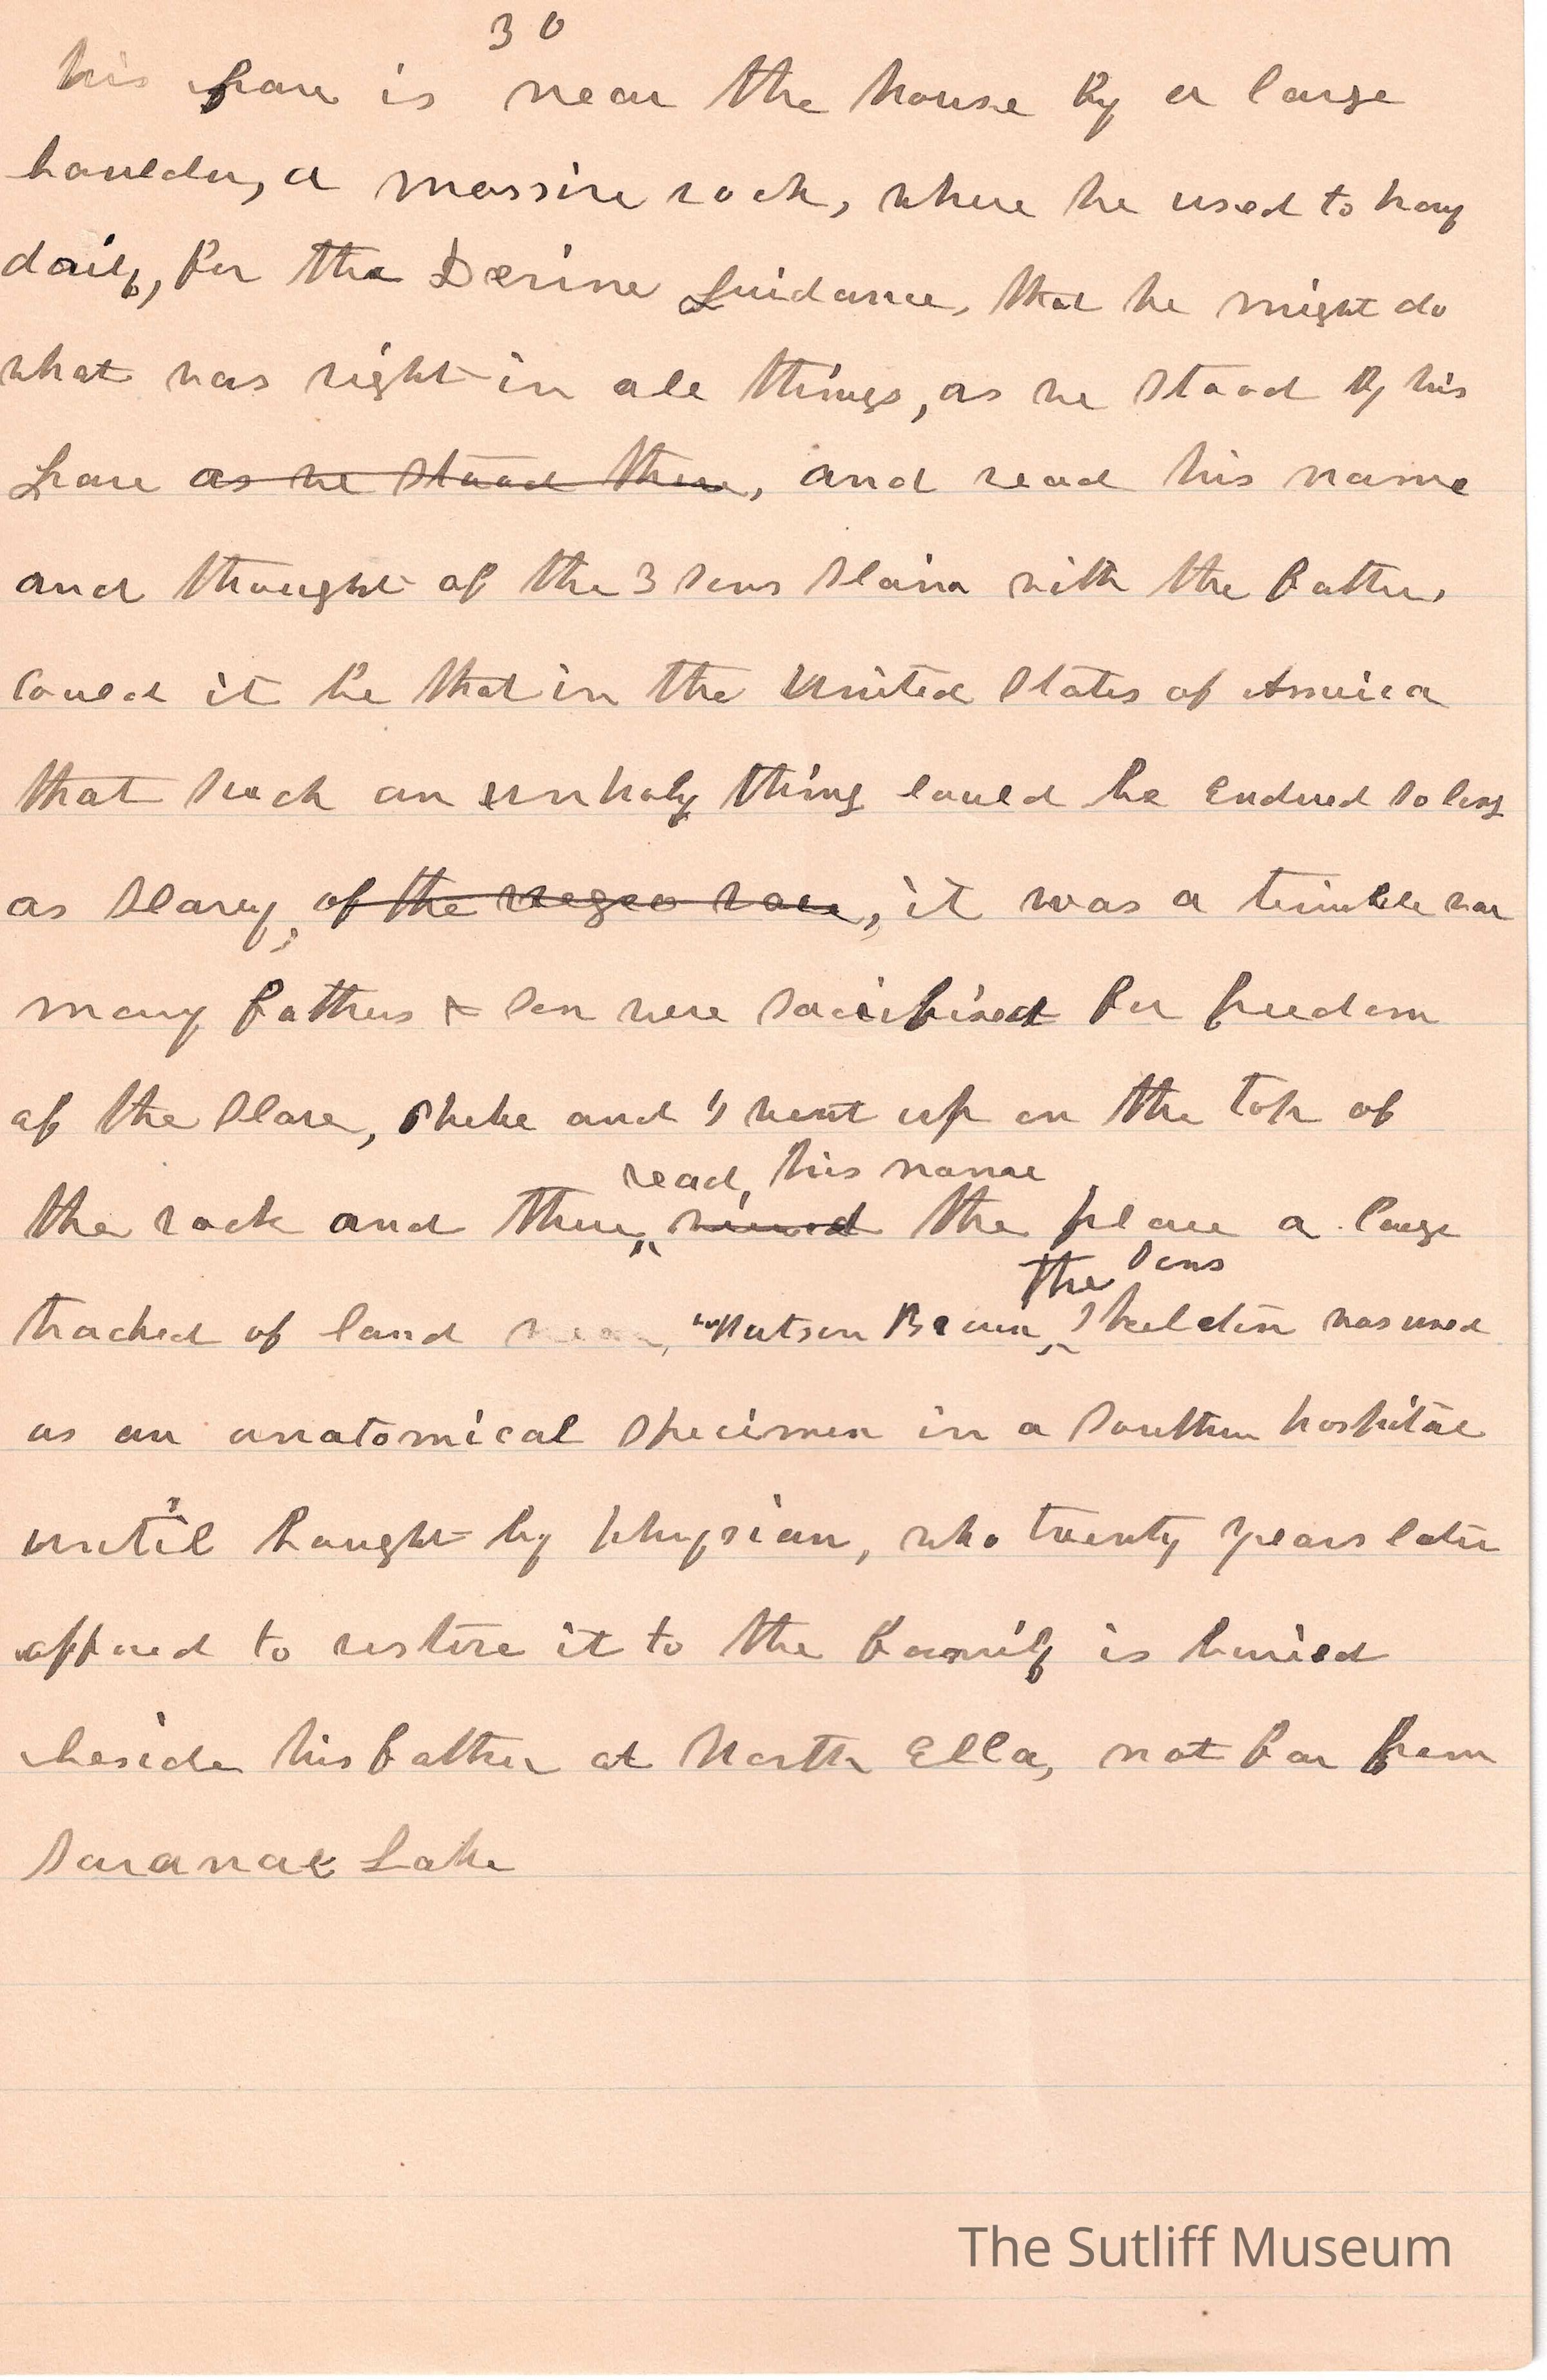 30
his grave is near the house by a large
boulder, a massive rock, where he used to pray
daily, for the Devine Guidance, that he might do
what was right in all things, as we stood by his
Grave as we stood there, and read his name
and thought of the 3 sons slain with the father,
Could it be that in the United States of America
that such an unholy thing could be endured so long
as Slavery, of the negro race, it was a terrible war
many fathers & son were sacrificed for freedom
of the Slave, and I went up on the top of
read, his name
the rock and there, the place a large
the Sons
tracked of land near, "Watson Brown, Skeleton was used
as an anatomical specimen in a Southern hospital
until bought by physian, who twenty years later
offered to restore it to the family is buried
beside his father at North Ella, not far from
Saranac Lake
The Sutliff Museum